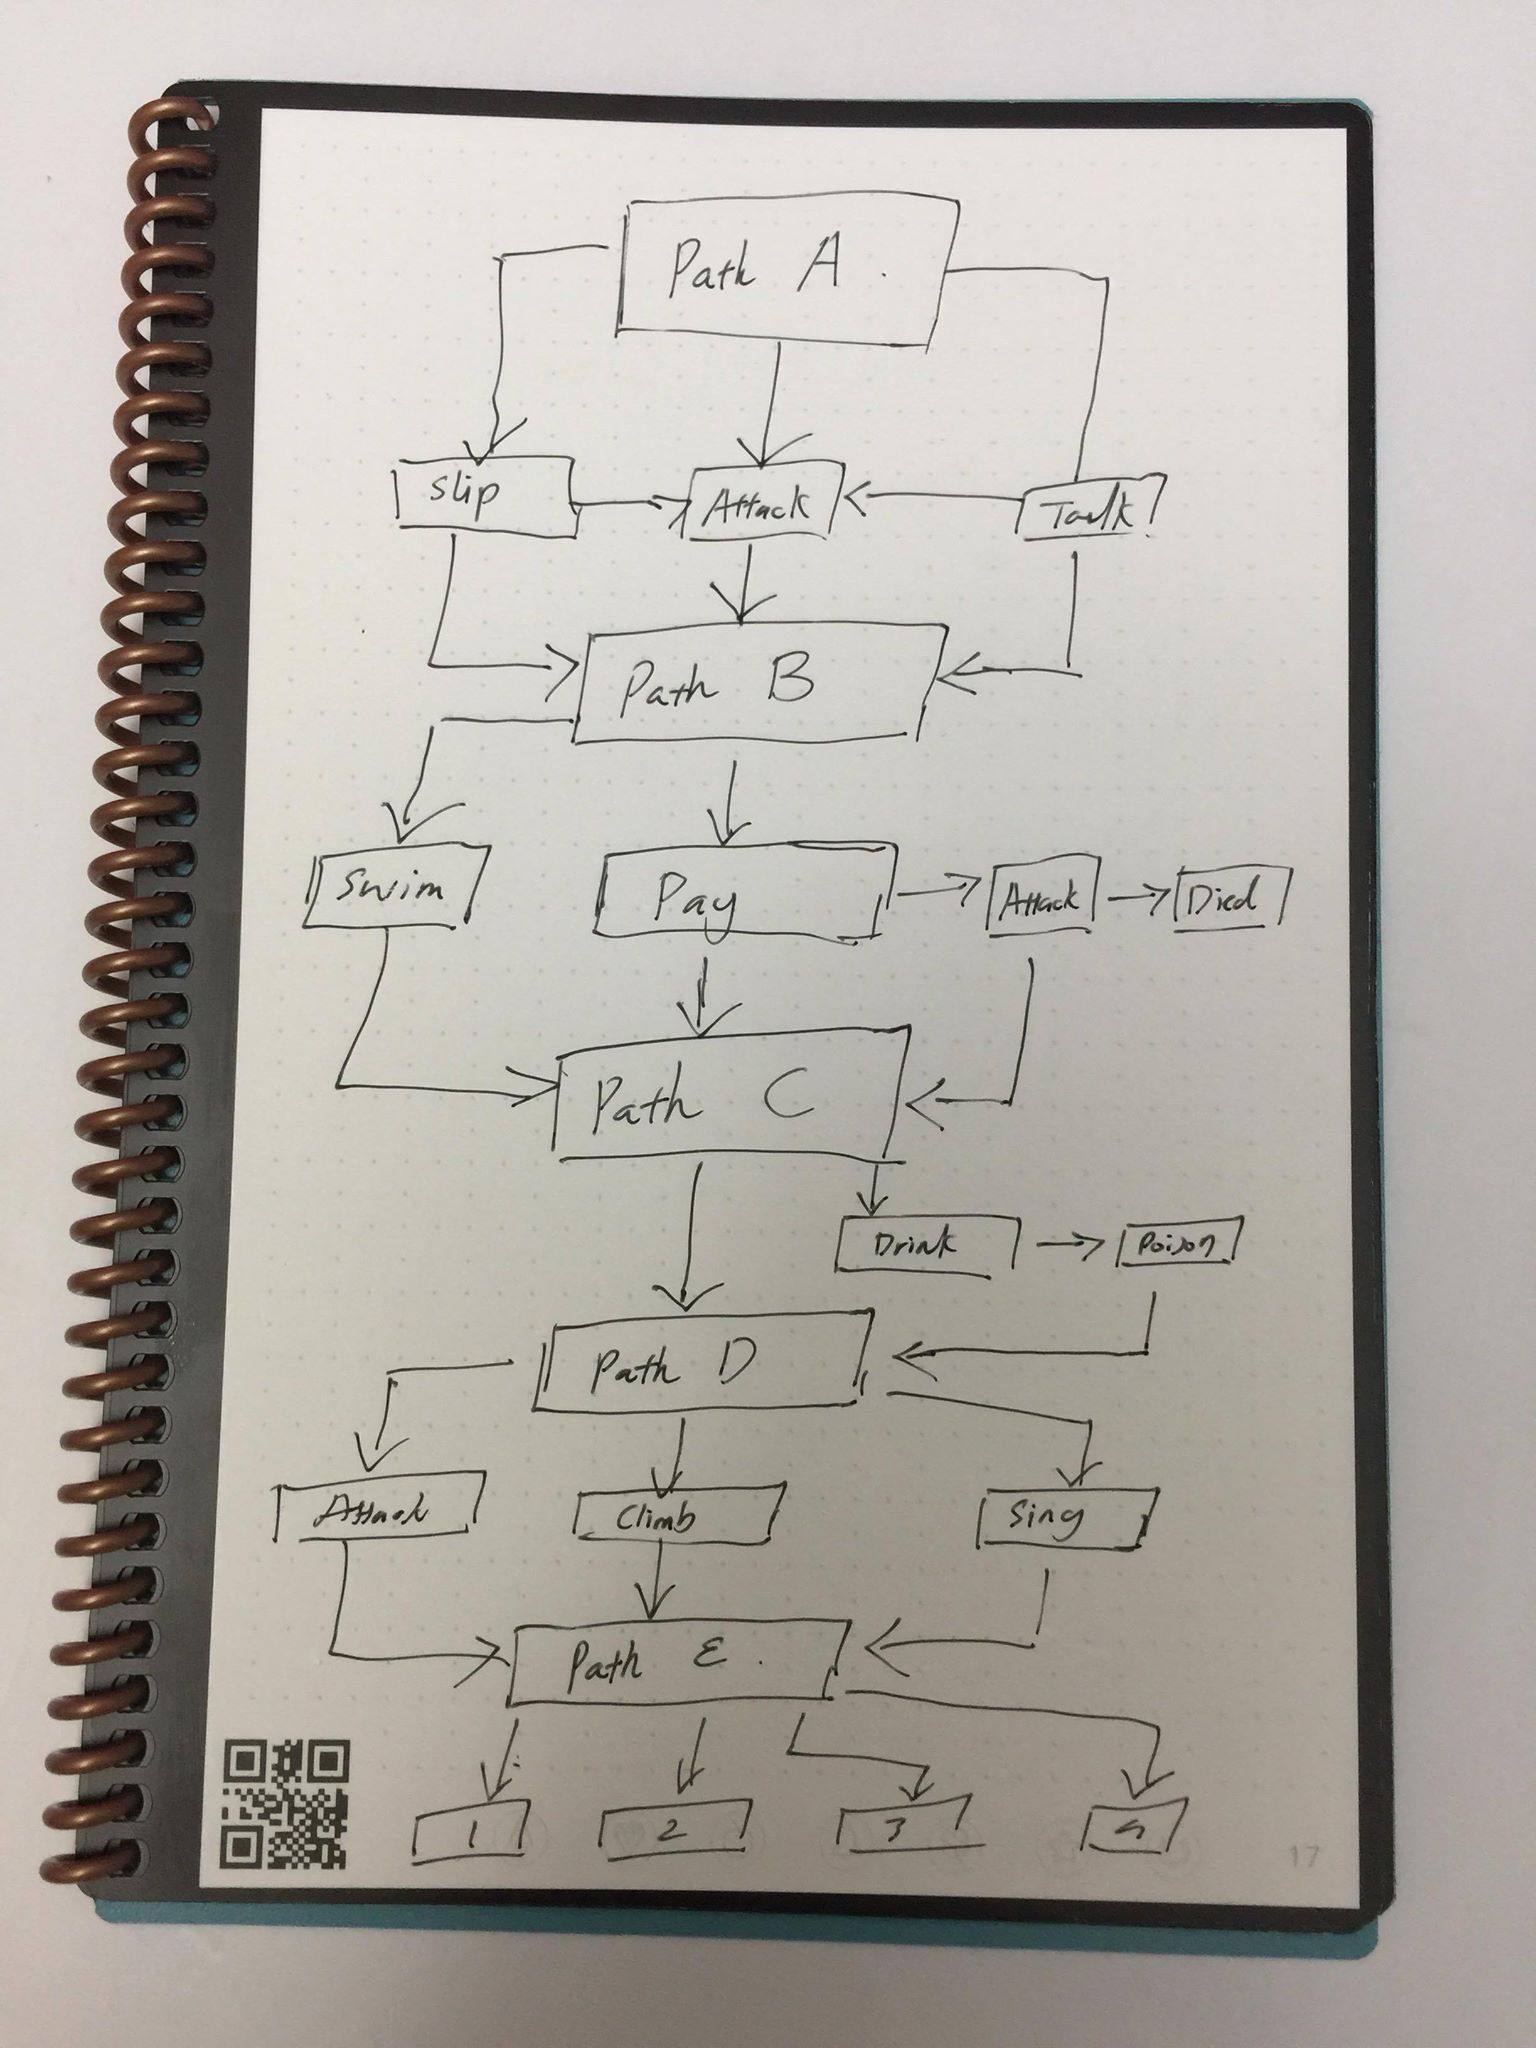 Path A.
Slip
Attack
Talk
Path B
Swim
Pay
Attack
Died
Path C
Drink
Poison
Path D
Attack
Climb
Sing
Path E.
1
2
3
4
17